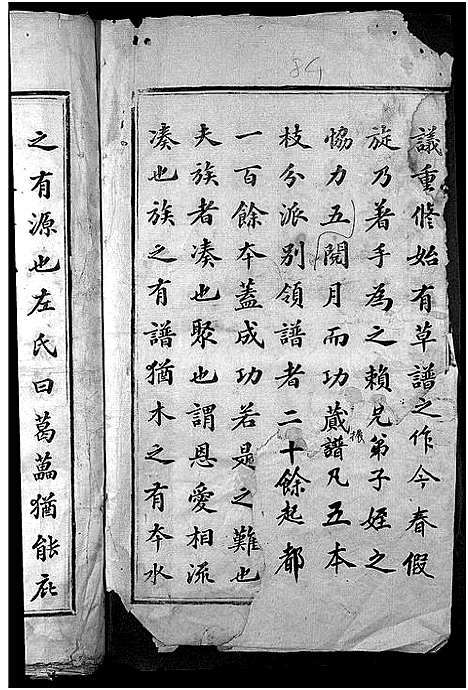 議重修始有草譜之作今春假
旋乃著手為之賴兄弟子姪之
恊力五閱月而功蕆譜凡五本
枝分派別領譜者二十餘起都
一百餘本蓋成功若是之難也
夫族者凑也聚也謂恩愛相流
凑也族之有譜猶木之有本水
之有源也左氏曰葛藟猶能庇